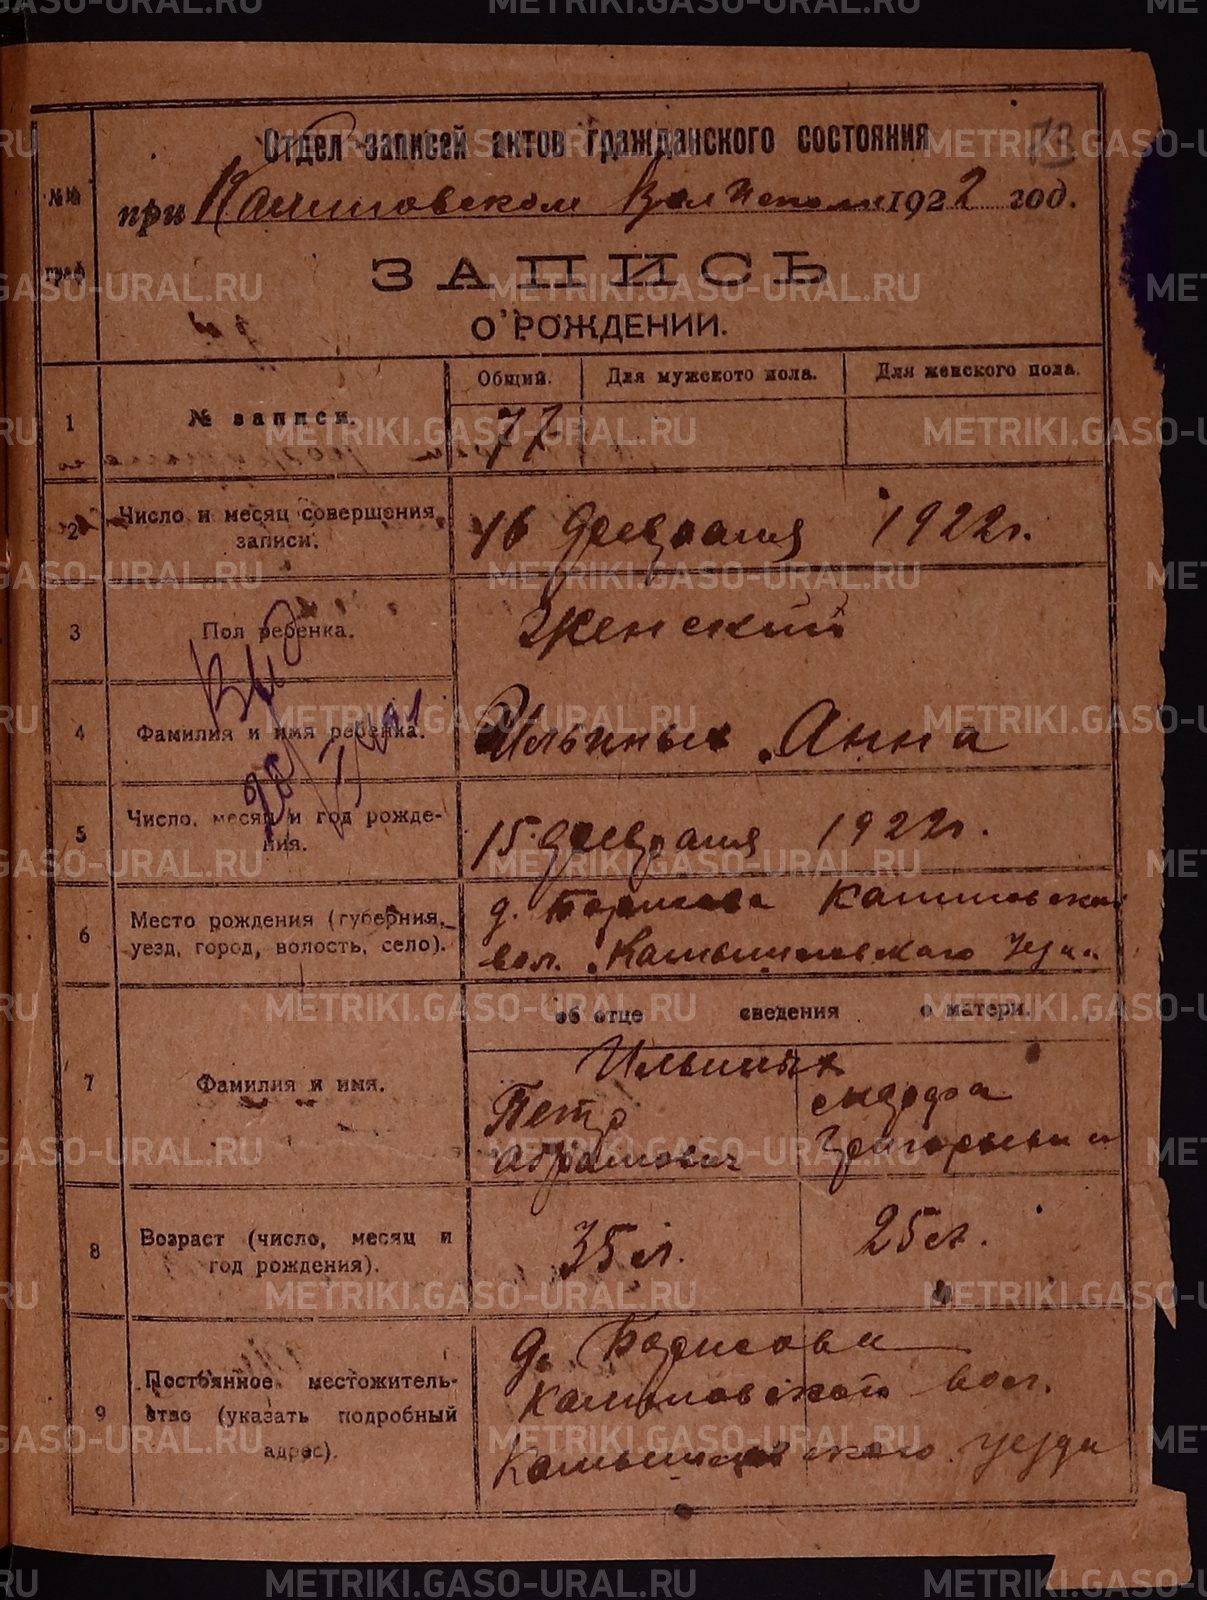 73
Отдел записей актов гражданского состояния
при Калиновском Вол Исполк 1922 год.
№№ граф
ЗАПИСЬ
О РОЖДЕНИИ.
Общий. Для мужского пола. Для женского пола.
1 № записи 77
2 Число и месяц совершения записи. 16 февраля 1922г.
3 Пол ребенка. Женский
4 Фамилия и имя ребенка. Ильиных Анна
5 Число, месяц и год рождения. 15 февраля 1922г.
6 Место рождения (губерния, уезд, город, волость, село). д. Борисова Калиновской
вол. Камышловского Уезда
об отце сведения о матери.
7 Фамилия и имя. Ильиных
Петр
Абрамович Григорьевна
8 Возраст (число, месяц и год рождения). 35 л. 25 л.
9 Постоянное местожительство (указать подробный адрес). д. Борисова
Калиновской вол.
Камышловского уезда
METRIKI.GASO-URAL.RU